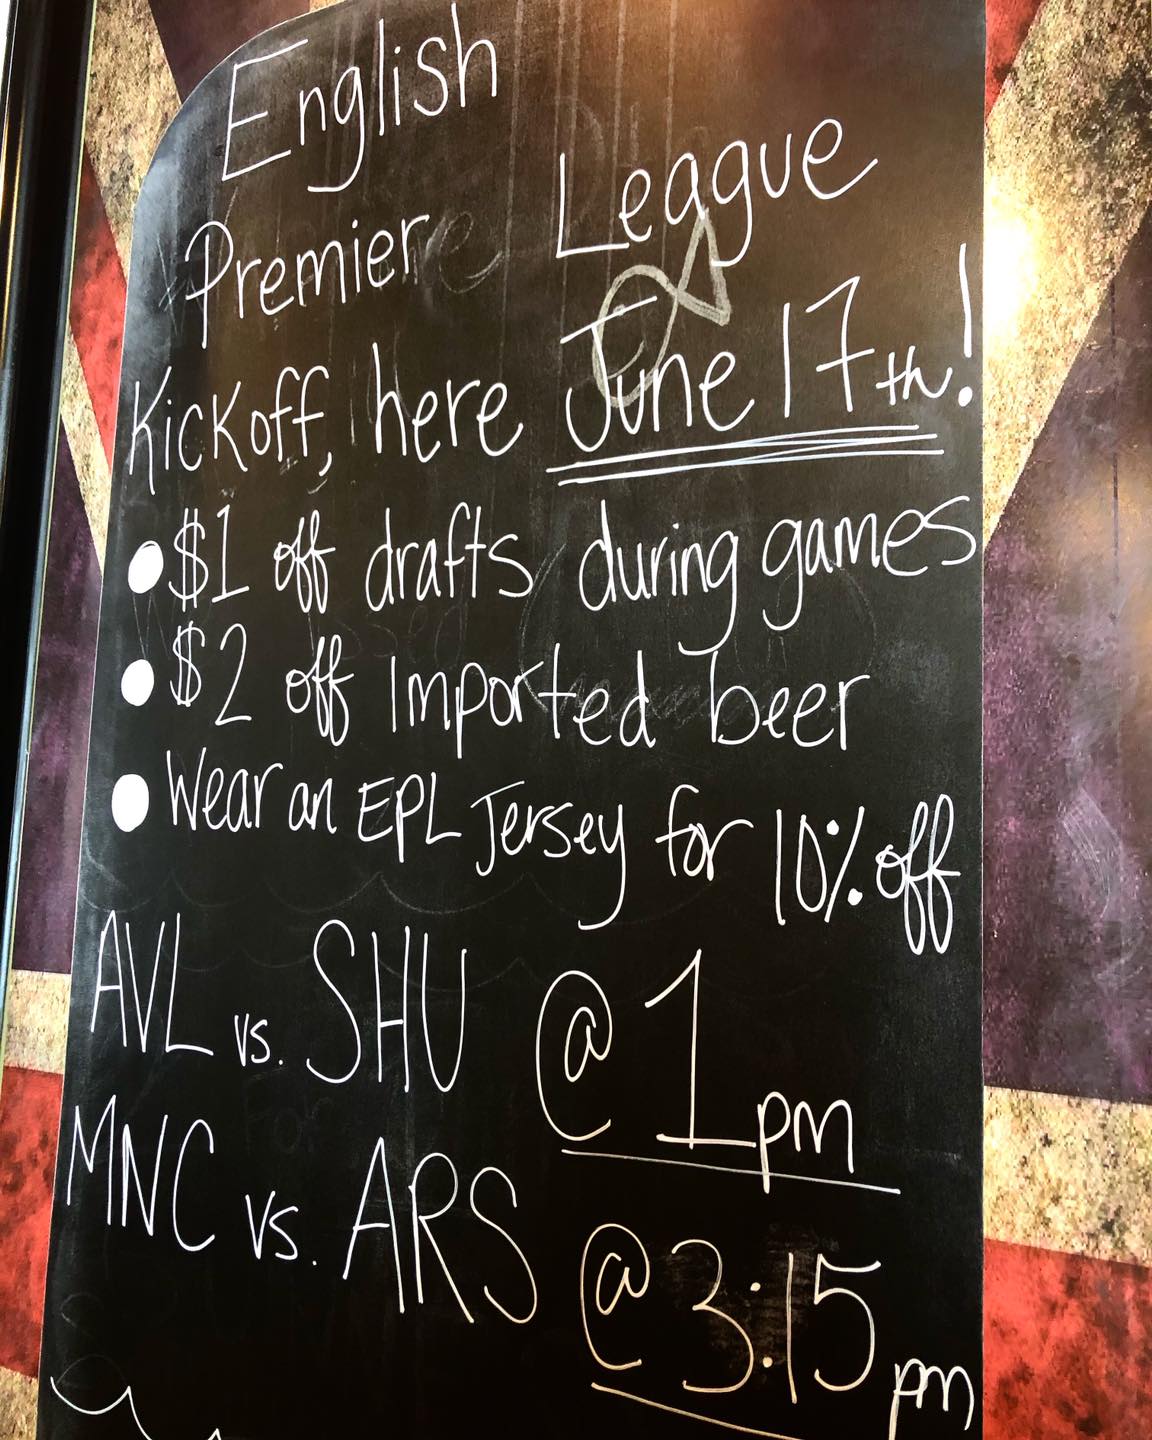 English
Premier League
Kickoff, here June 17th!
$1 off drafts during games
$2 off Imported beer
Wear an EPL Jersey for 10% off
AVL vs. SHU @ 1pm
MNC vs. ARS @ 3:15pm